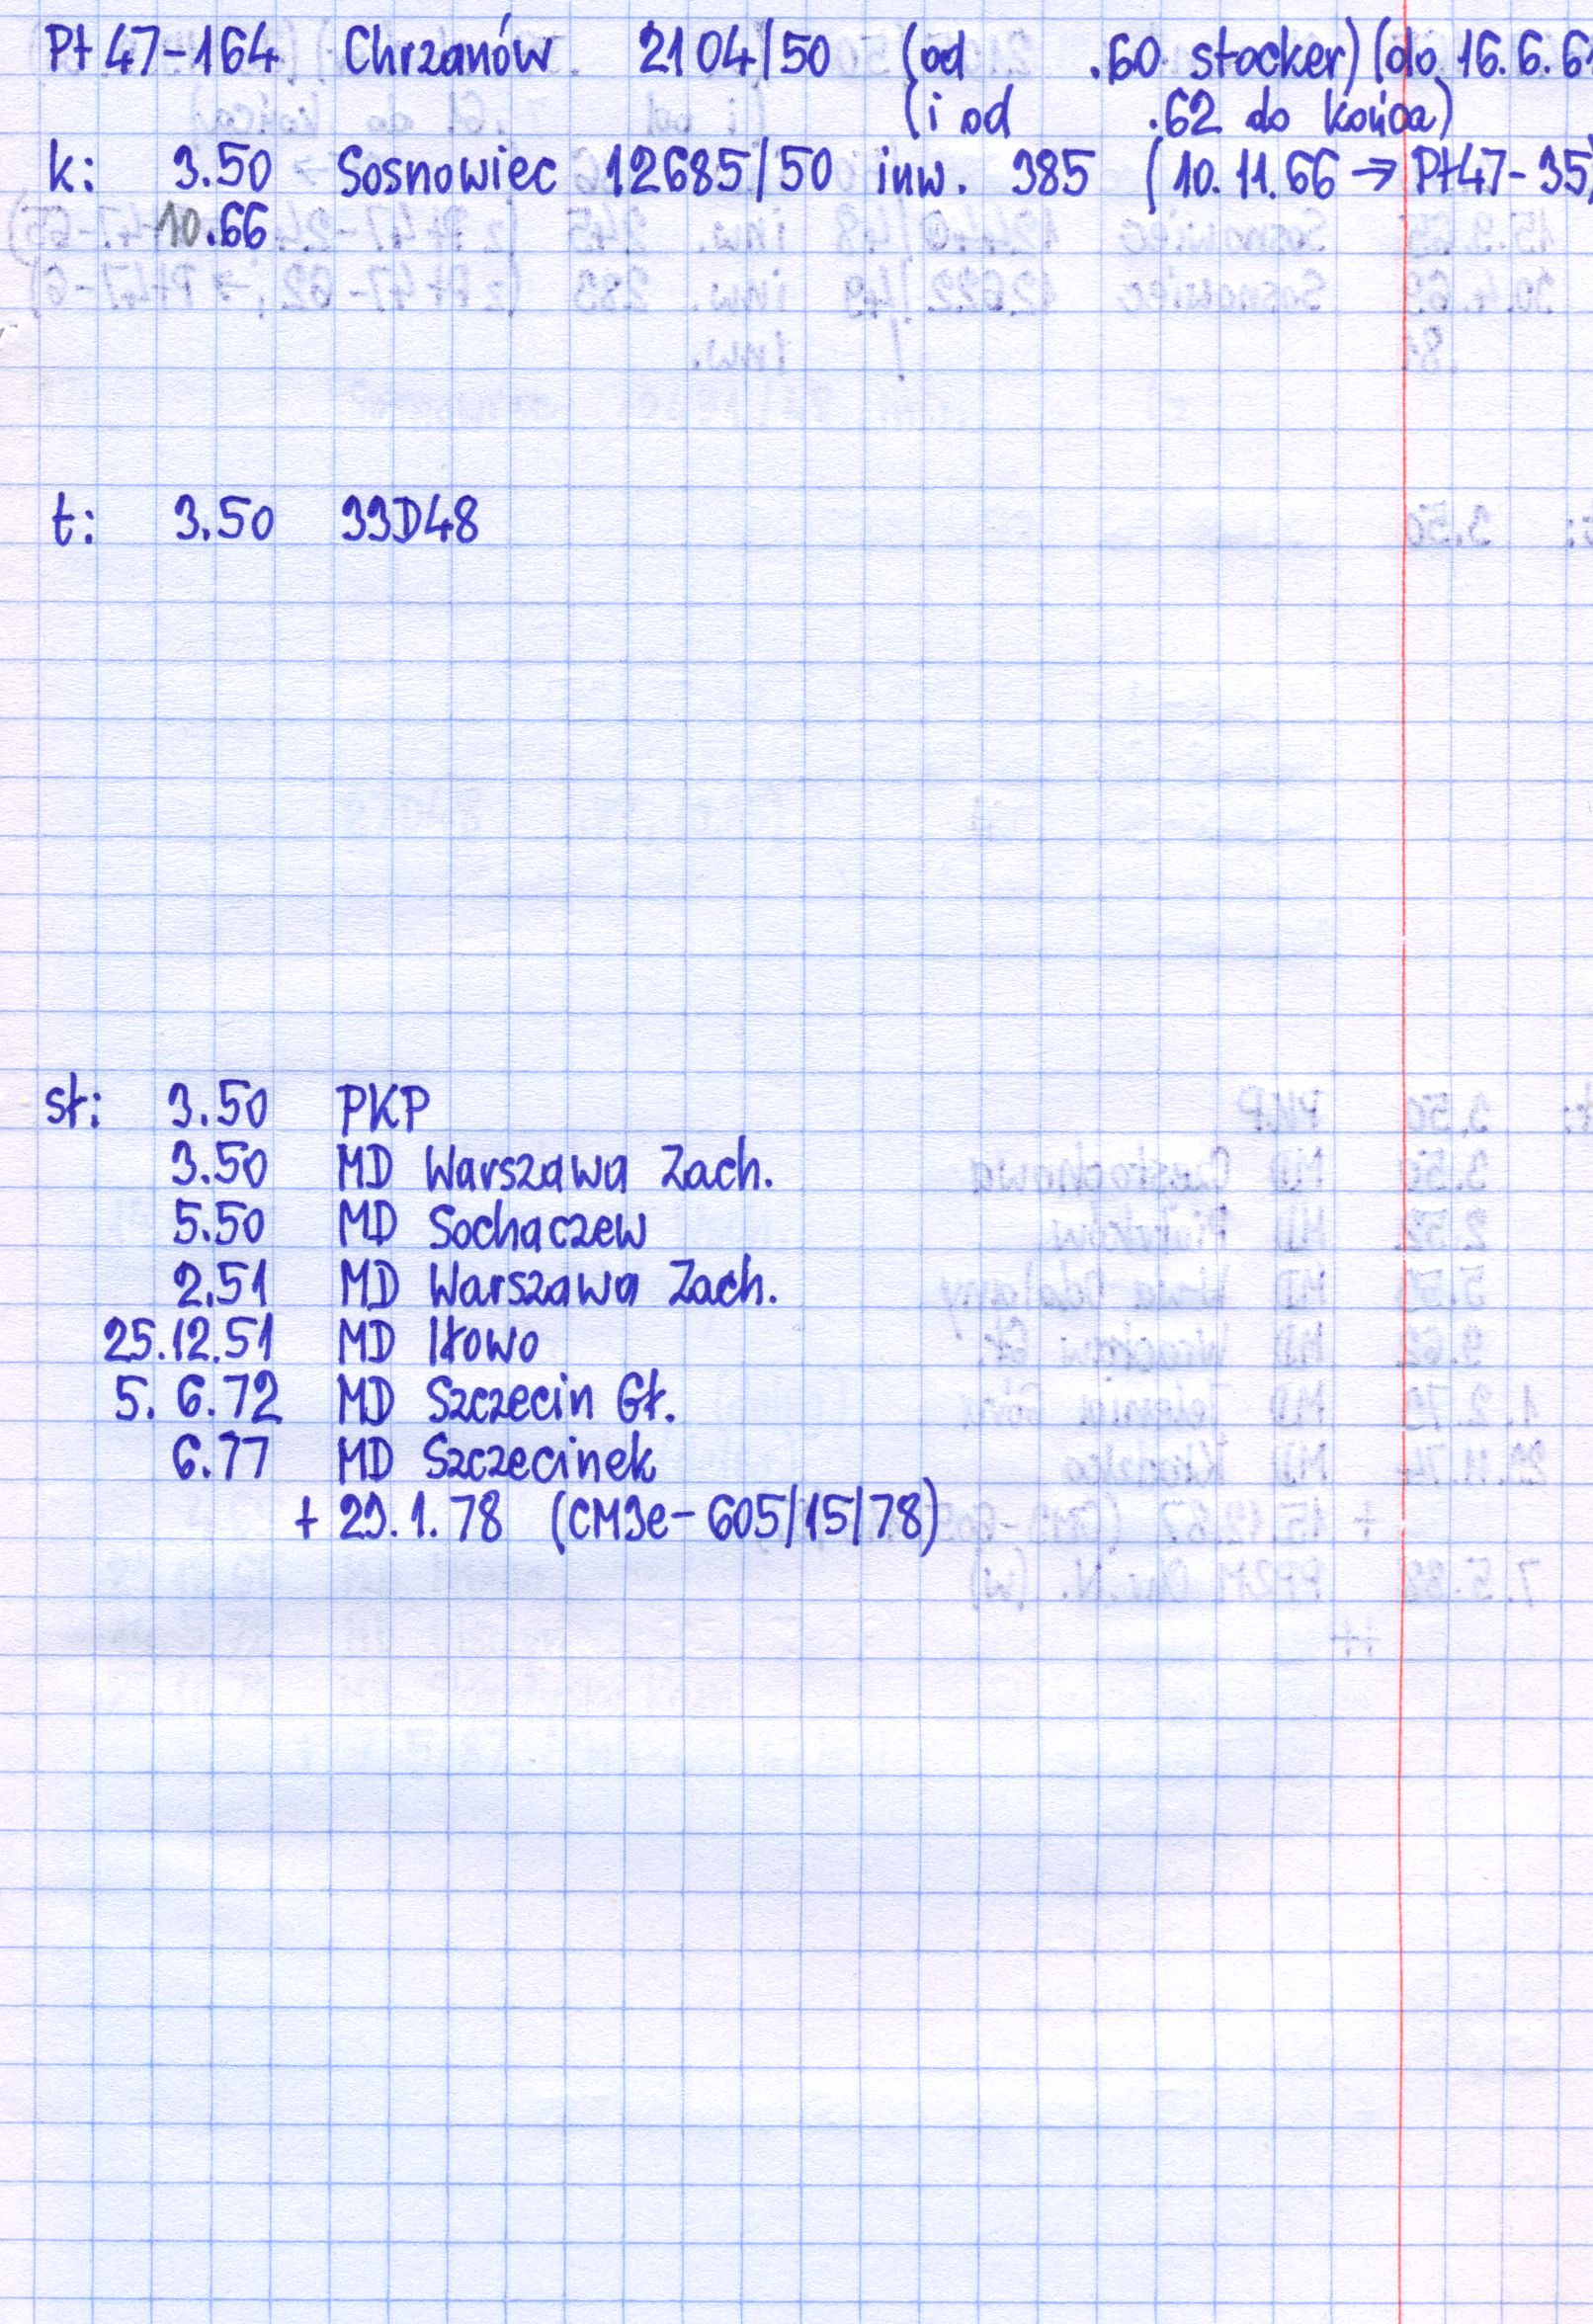 Pt47-164 Chrzanów 2104/50 (od .60 stocker) (do 16.6.61
(i od .62 do końca)
k: 3.50 Sosnowiec 12685/50 inw. 385 (10.11.66 → Pt47-35)
10.66
t: 3.50 33D48
st: 3.50 PKP
3.50 MD Warszawa Zach.
5.50 MD Sochaczew
2.51 MD Warszawa Zach.
25.12.51 MD Iłowo
5. 6.72 MD Szczecin Gł.
6.77 MD Szczecinek
+ 29.1.78 (CM3e-605/15/78)